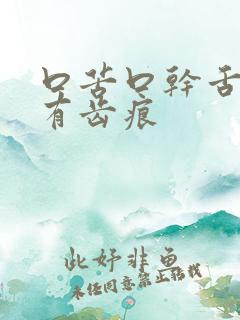 口苦口幹舌
有齿痕
此好非鱼
未经同意禁止转载